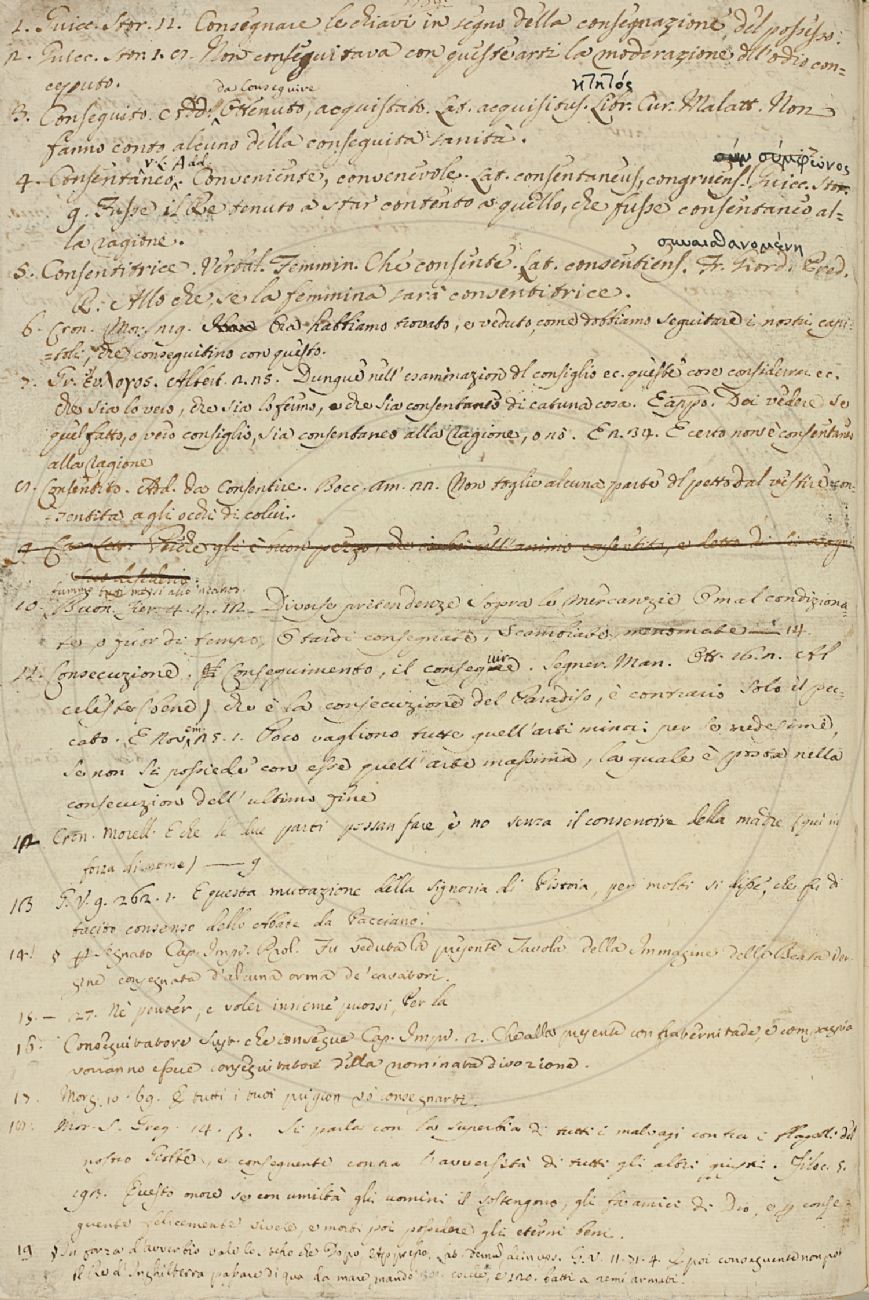 1. Guicc. Stor. 11. Consegnare le chiavi in segno della consegnazione del possesso.
2. Guicc. Stor. 1. 87. Non conseguitava con queste arti la moderazione dell'odio con=
ceputo.
da Conseguire κτητός
3. Conseguito. Add. Ottenuto, acquistato. Lat. acquisitus. Libr. Cur. Malatt. Non
fanno conto alcuno della conseguita sanità.
v. L. Add. σύμφωνος
4. Consentaneo. Conveniente, convenevole. Lat. consentaneus, congruens. Guicc. Stor.
9. Fusse il Re tenuto a star contento a quello, che fusse consentaneo al=
la ragione.
συναισθανομένη
5. Consentitrice. Verbal. Femmin. Che consente. Lat. consentiens. Fr. Giord. Pred.
R. Allo che, se la femmina sarà consentitrice.
6. Cron. Mor. 219. Ora habbiamo trovato, e veduto, come dobbiamo seguitare i nostri capi=
toli, che conseguitino con questo.
7. Albert. 2. 25. Dunque nell'esaminazion del consiglio ec. queste cose considerra ec.
che sia lo vero, che sia lo fermo, e che sia consentaneo di catuna cosa. E appo. Dei vedere se
quel fatto, o vero consiglio, sia consentaneo alla ragione, o no. E 2. 34. E certo non è consentaneo
alla ragione
8. Consentito. Add. da Consentire. Bocc. Am. 22. Non toglie alcuna parte del petto dal vestire con=
sentita agli occhi di colui.
9.
furono messi
10. Buon. Fier. 4. 4. 12. Diverse pretendenze Sopra le mercanzie O mal condiziona=
te, o fuor di tempo, O tardi consegnate, Scambiate, menomate — 14.
11. Consecuzione. Conseguimento, il conseguire. Segner. Man. Ott. 16. 2. Al
celeste bene) che è la consecuzione del Paradiso, è contrario solo il pec=
cato. E Novem. 25. 1. Poco vagliono tutte quell'arti minori per se medesime,
se non si possiede con esse quell'arte massima, la quale è posta nella
consecuzion dell'ultimo fine
12 Cron. Morell. E che le due parti possan fare, e no senza il consentire della madre (qui in
forza di nome) — 9
13 G. V. 9. 262. 1. E questa mutazione della signoria di Pistoia, per molti si disse, che fu di
tacito consenso dello Abate da Pacciano.
14. segnato Cap. Imp. Prol. Fu veduta la presente Tavola della Immagine della Beata Ver=
gine consegnata d'alcuna orma de' cavatori.
15. — 27. Nè poter, e voler insieme puossi, Per la
16. Conseguitatore Sust. che consegue Cap. Imp. 2. Che alla presente confraternitade, e compagnia
vorranno essere conseguitatori della nominata divozione.
17. Morg. 10. 69. E tutti i tuoi prigion vo' consegnarti.
18. Mor. S. Greg. 14. 13. Si parla con la superbia di tutti i malvagi contra i flagelli del
nostro Giobbe, e conseguente contra l'avversità di tutti gli altri giusti. Filoc. 5.
198. Questo onore se con umiltà gli uomini il sostengono, gli fa amici di Dio, e per conse=
guente felicemente vivere, e morti poi possedere gli eterni beni.
19 In forza d'avverbio vale lo stesso che Dopo, Appresso, Lat. G. V. 11. 71. 4. E poi conseguente non può
il Re d'Inghilterra passare di qua da mare, mandò cocche, e 120. batti a remi armati.